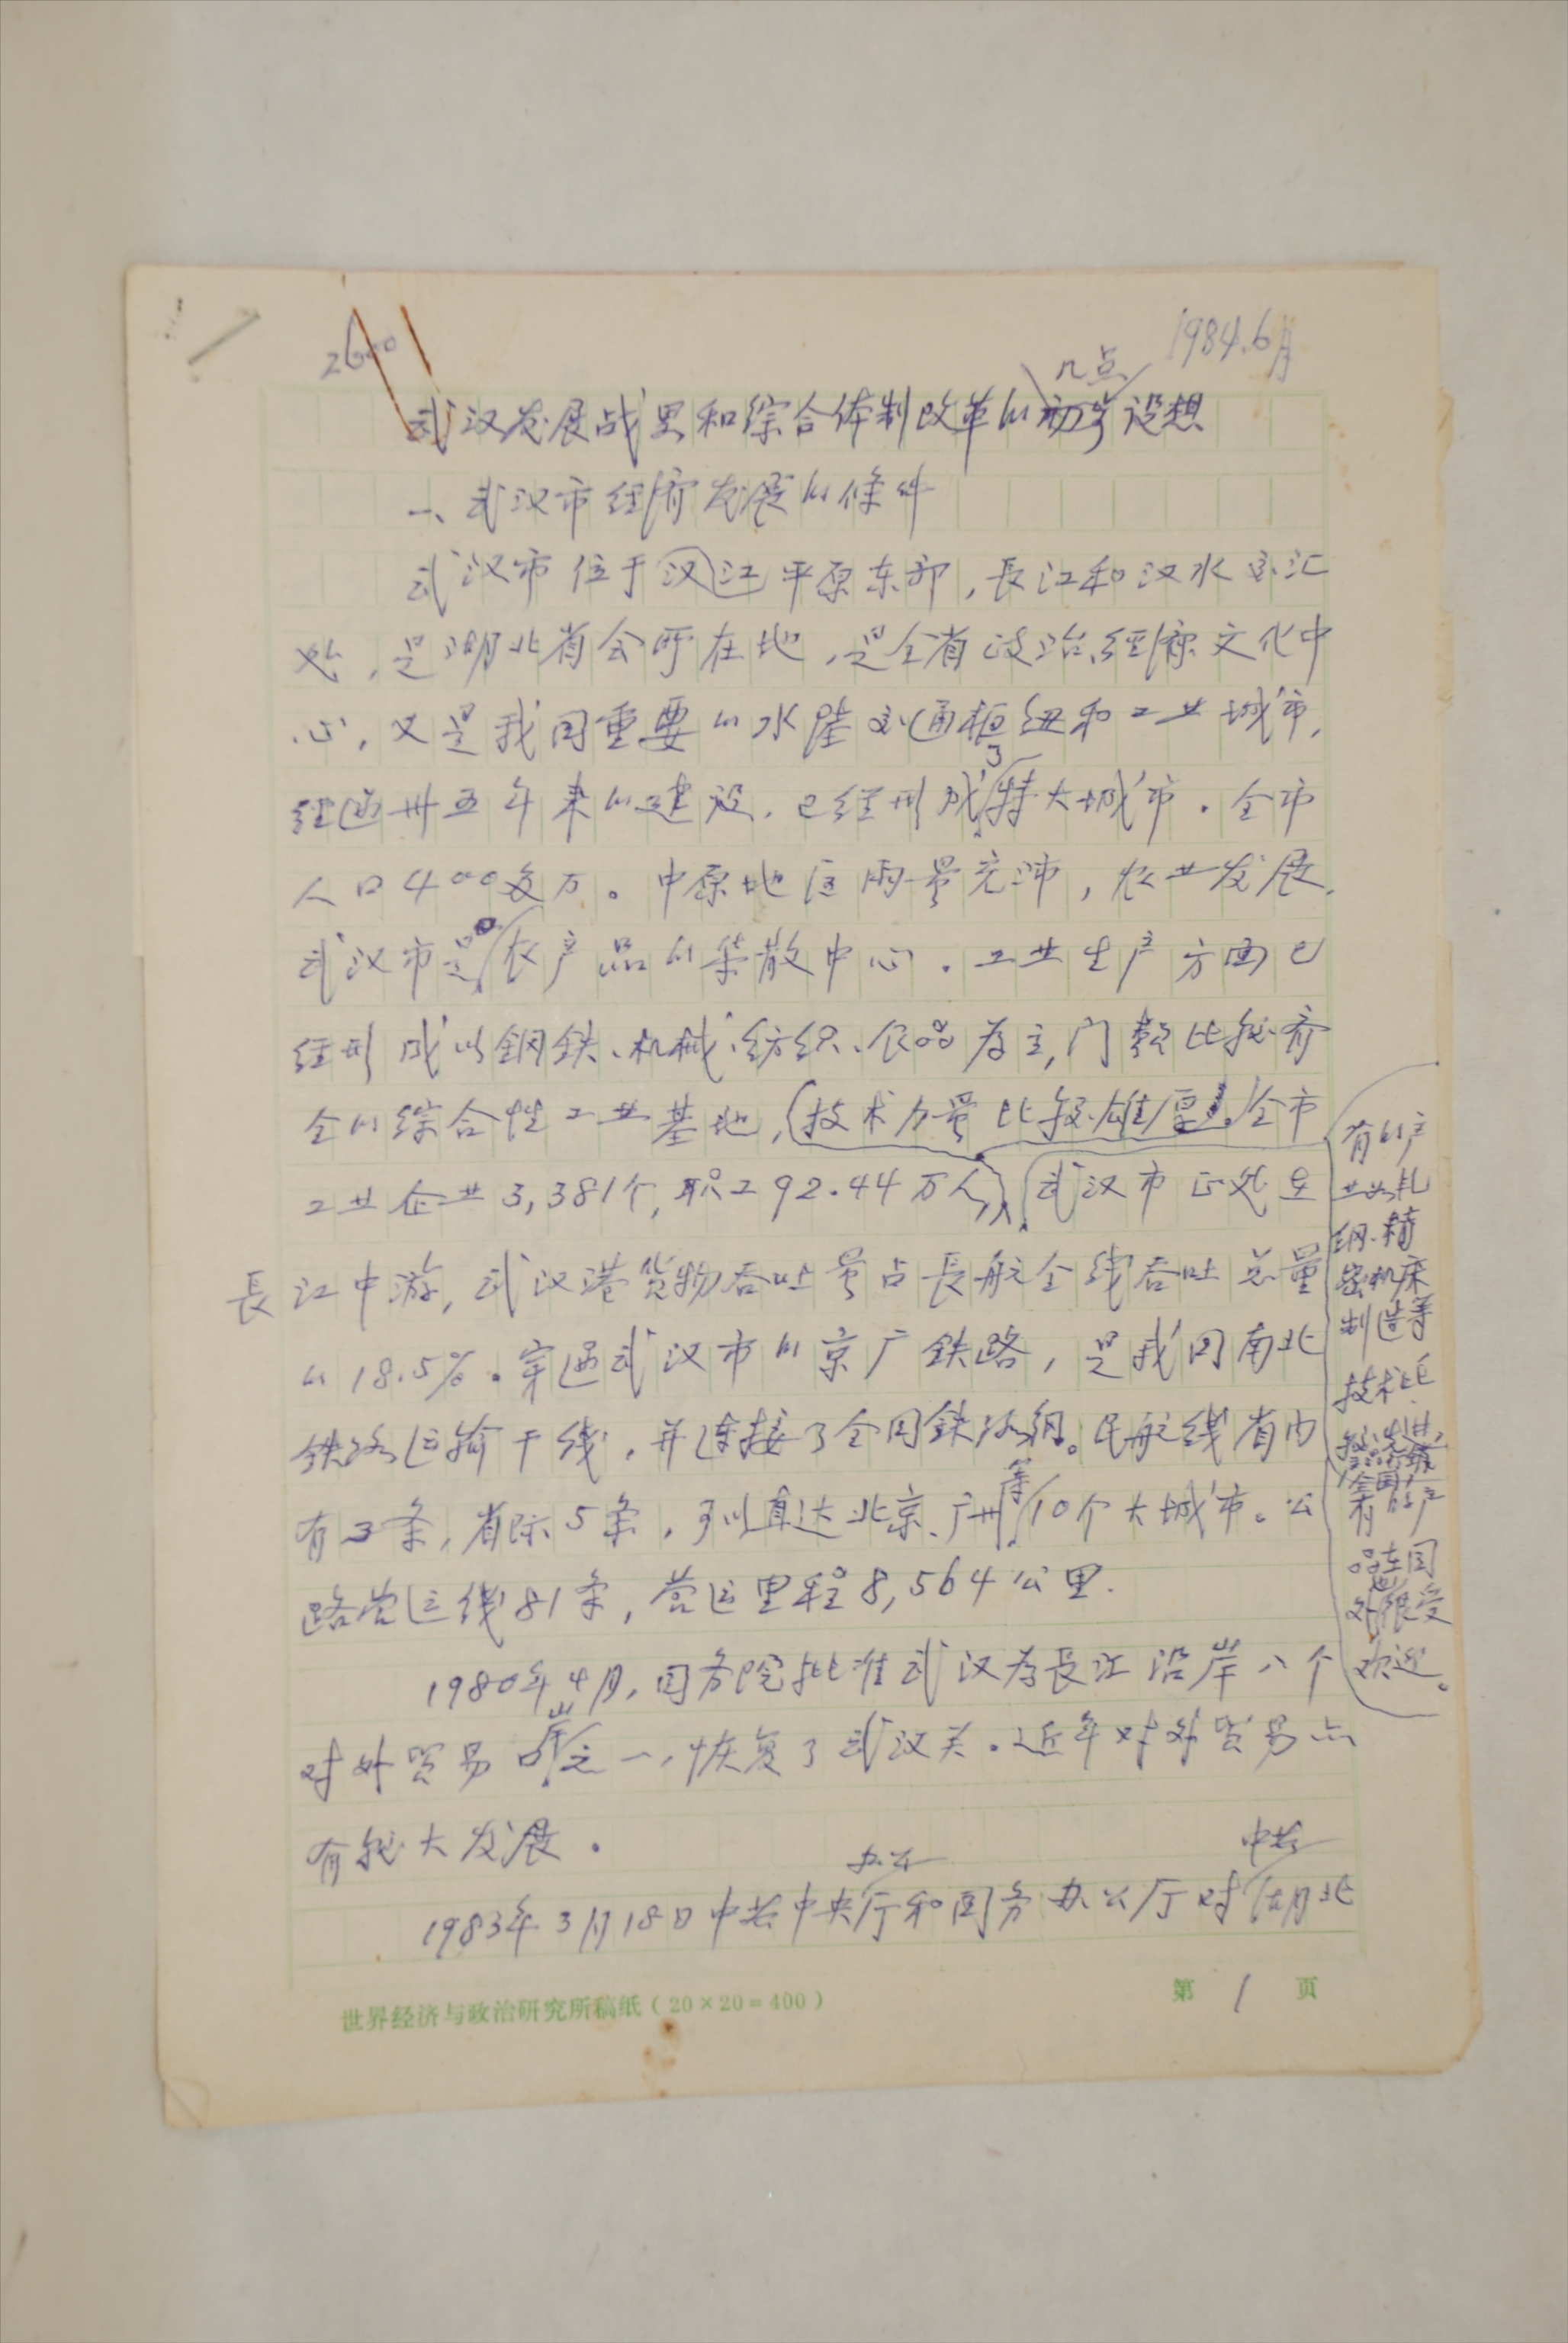 2600
1984.6月
几点
武汉发展战畧和综合体制改革的初步设想
一、武汉市经济发展的条件
武汉市位于汉江平原东部，長江和汉水交汇
处，是湖北省会所在地，是全省政治、经济文化中
心，又是我国重要的水陸交通枢纽和工业城市，
经过卅五年来的建设，已经形成了特大城市。全市
人口400多万。中原地区雨量充沛，农业发展，
武汉市是农产品的集散中心。工业生产方面已
经形成以钢铁、机械、纺织、食品为主，门类比较齐
全的综合性工业基地，技术力量比较雄厚。全市
工业企业3,381个，职工92.44万人，武汉市正处在
長江中游，武汉港货物吞吐量占長航全线吞吐总量
的18.5%。穿过武汉市的京广铁路，是我国南北
铁路运输干线，并连接了全国铁路网。民航线省内
有3条，省际5条，可以直达北京、广州等10个大城市。公
路营运线81条，营运里程8,564公里.
1980年4月，国务院批准武汉为長江沿岸八个
对外贸易口岸之一，恢复了武汉关。近年对外贸易亦
有较大发展。
1983年3月18日中共中央办公厅和国务办公厅对中共湖北
有的产
业如轧
钢、精
密机床
制造等
技术比
较先进，
有的产
品在国
外也很受
欢迎。
世界经济与政治研究所稿纸（20×20=400）
第 1 页